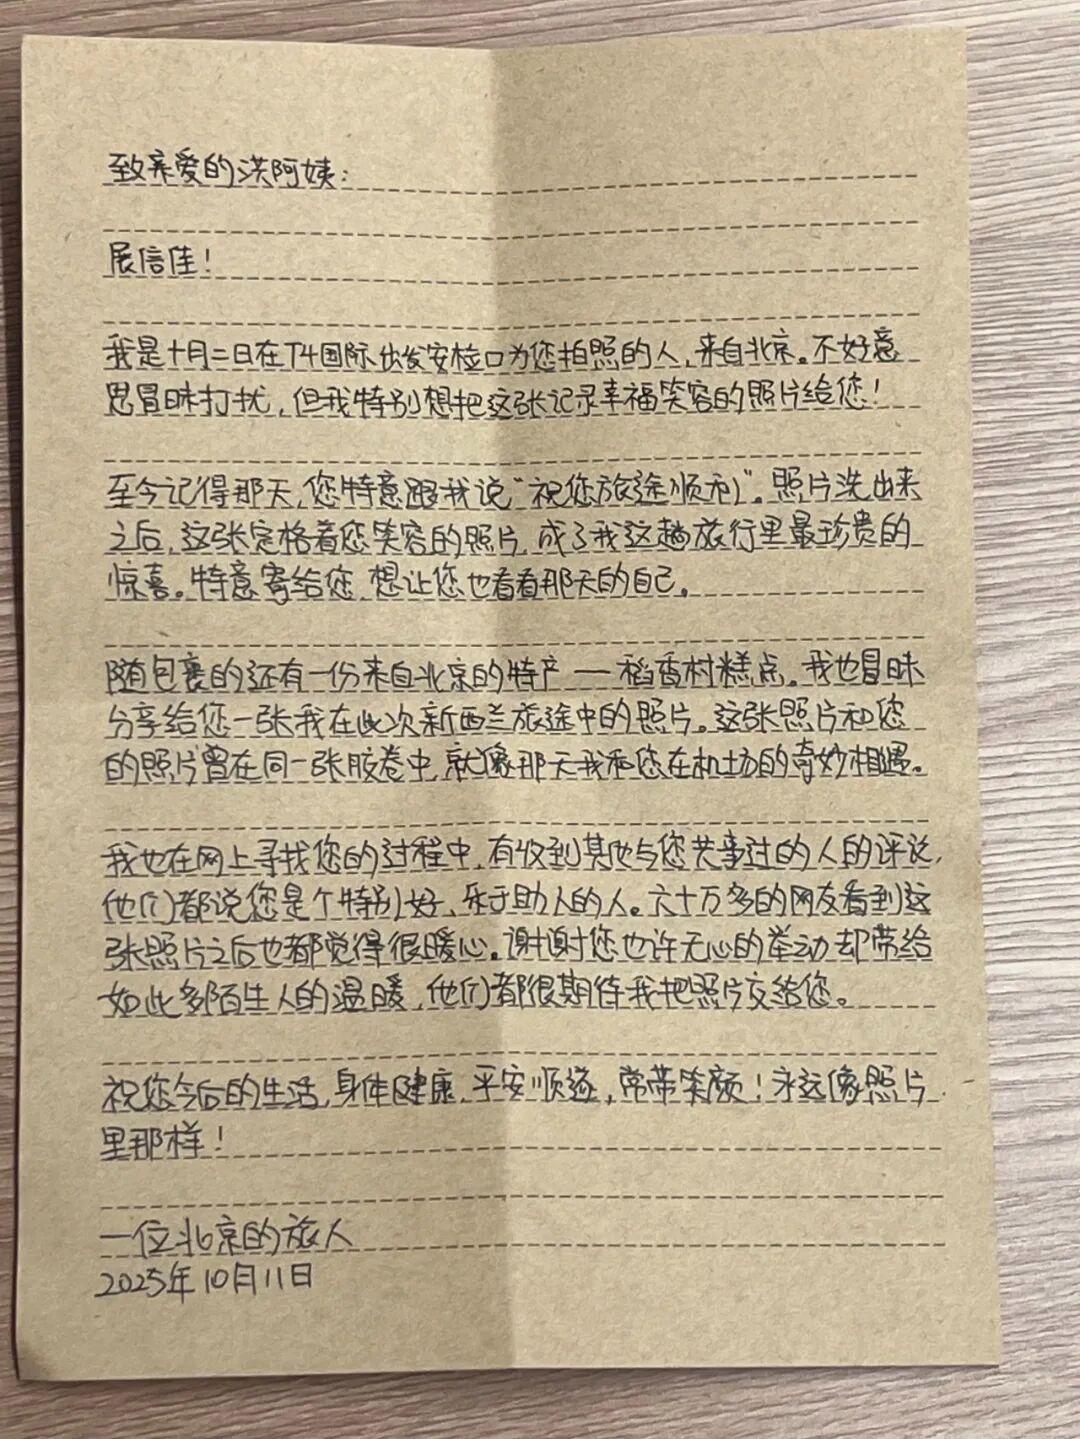 致亲爱的洪阿姨：
展信佳！
我是十月二日在T4国际出发安检口为您拍照的人，来自北京。不好意
思冒昧打扰，但我特别想把这张记录幸福笑容的照片给您！
至今记得那天，您特意跟我说“祝您旅途顺利”。照片洗出来
之后，这张定格着您笑容的照片，成了我这趟旅行里最珍贵的
惊喜。特意寄给您，想让您也看看那天的自己。
随包裹的还有一份来自北京的特产——稻香村糕点。我也冒昧
分享给您一张我在此次新西兰旅途中的照片。这张照片和您
的照片曾在同一张胶卷中，就像那天我和您在机场的奇妙相遇。
我也在网上寻找您的过程中，有收到其他与您共事过的人的评论，
他们都说您是个特别好、乐于助人的人。六十万多的网友看到这
张照片之后也都觉得很暖心。谢谢您也许无心的举动却带给
如此多陌生人的温暖，他们都很期待我把照片交给您。
祝您今后的生活，身体健康，平安顺遂，常带笑颜！永远像照片
里那样！
一位北京的旅人
2025年10月11日